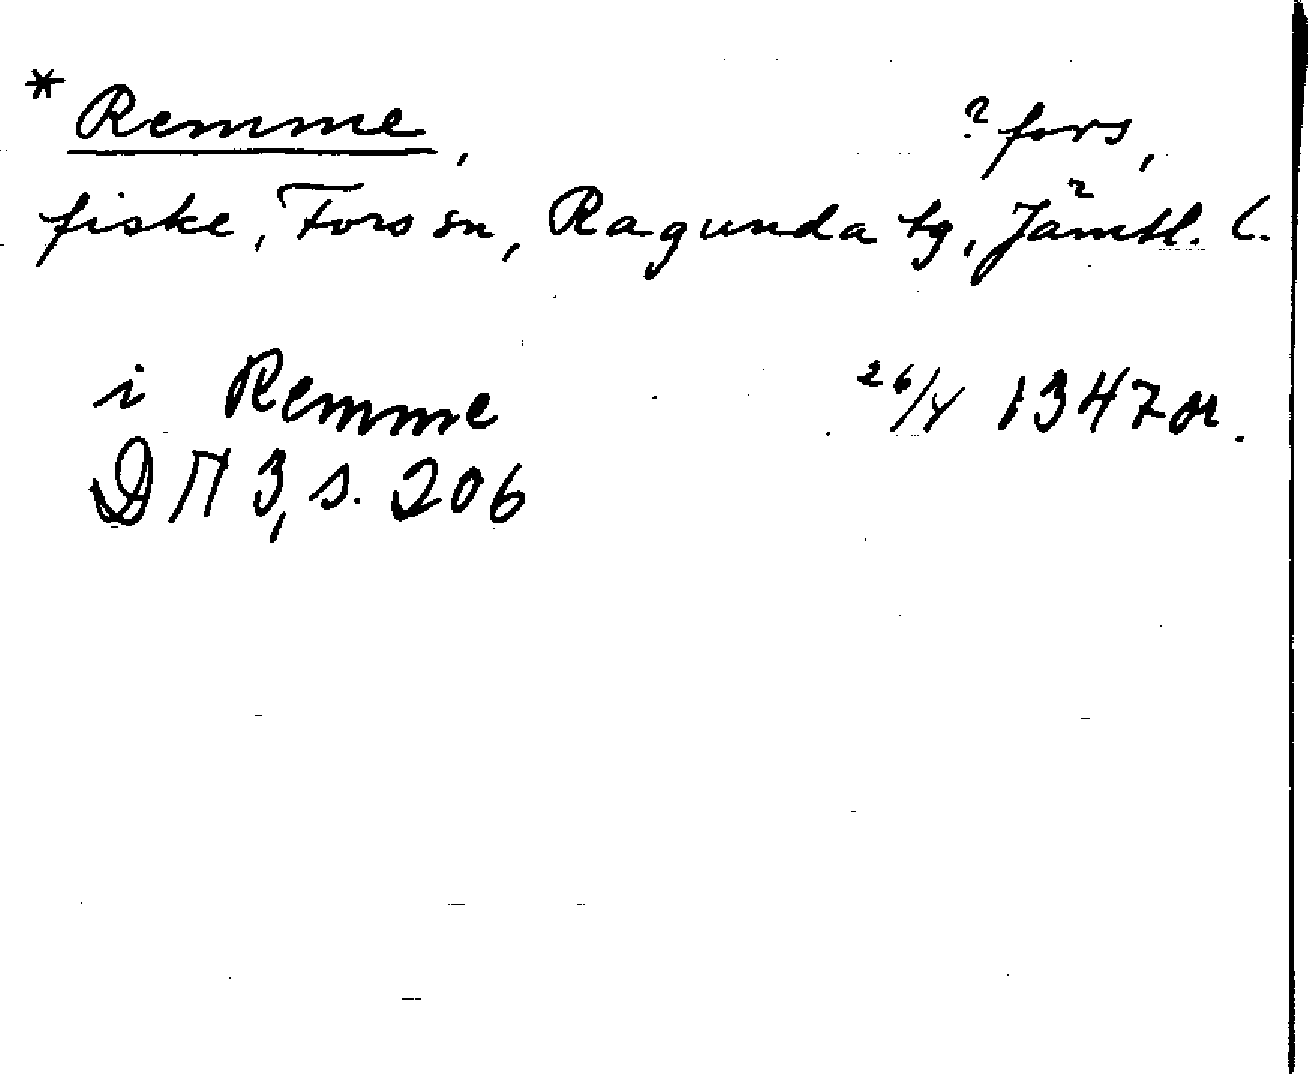 * Remme, ? fors,
fiske, Fors sn, Ragunda tg, Jämtl. l.
i Remme 26/4 1347 or.
DN 3, s. 206